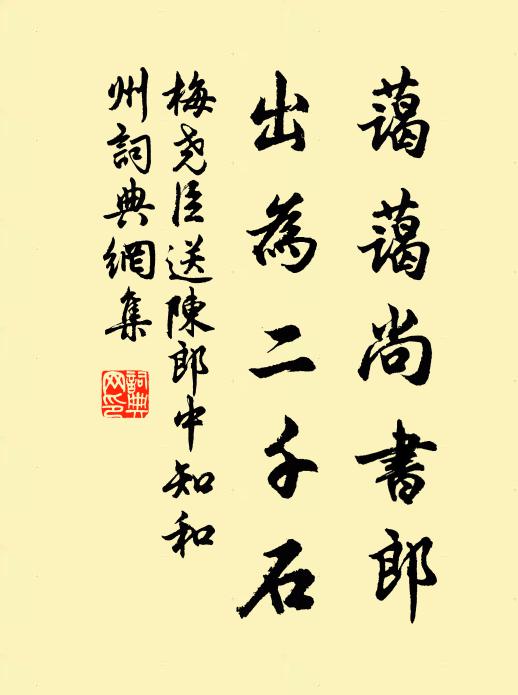 藹藹尚書郎
出為二千石
梅堯臣送陳郎中知和
州詞典網集
詞典网印